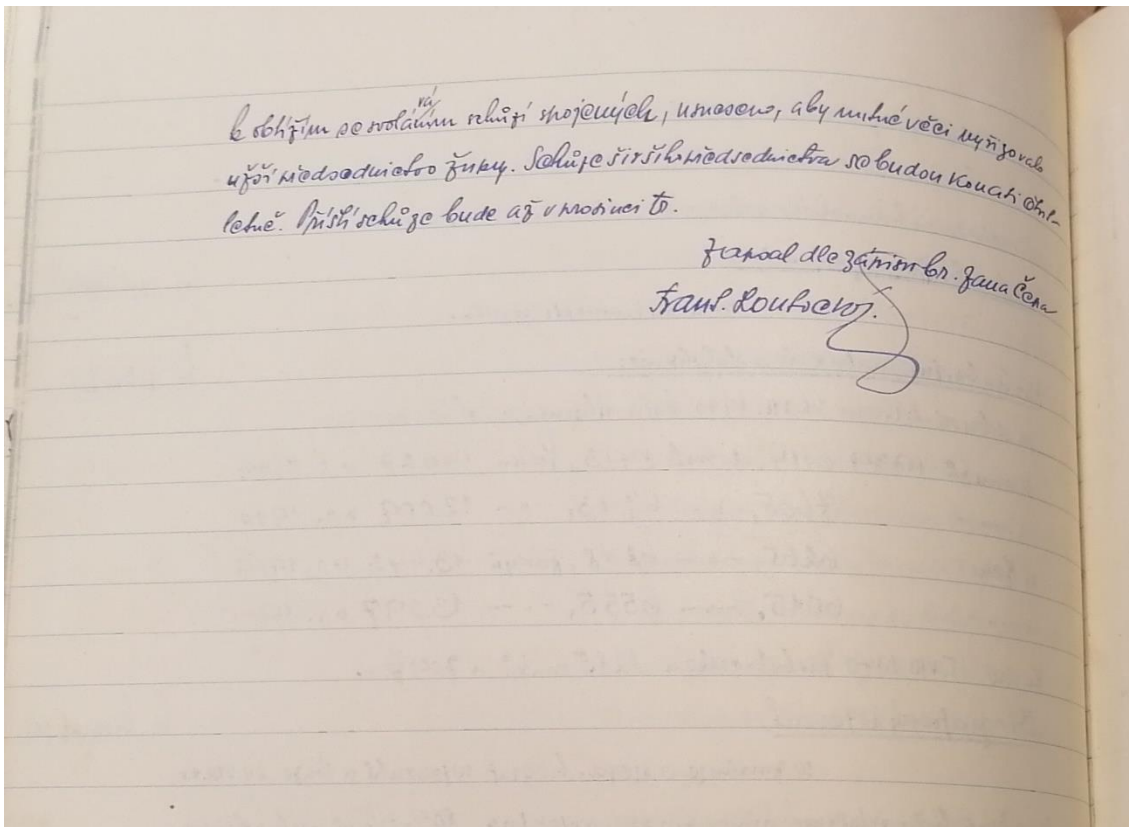 k obtížím se svoláváním schůzí spojených, usneseno, aby nutné věci vyřizovalo
užší předsednictvo župy. Schůze širšího předsednictva se budou konati čtvrt-
letně. Příští schůze bude až v prosinci t.r.
Zapsal dle zápisu br. Jana Čepa
Frant.